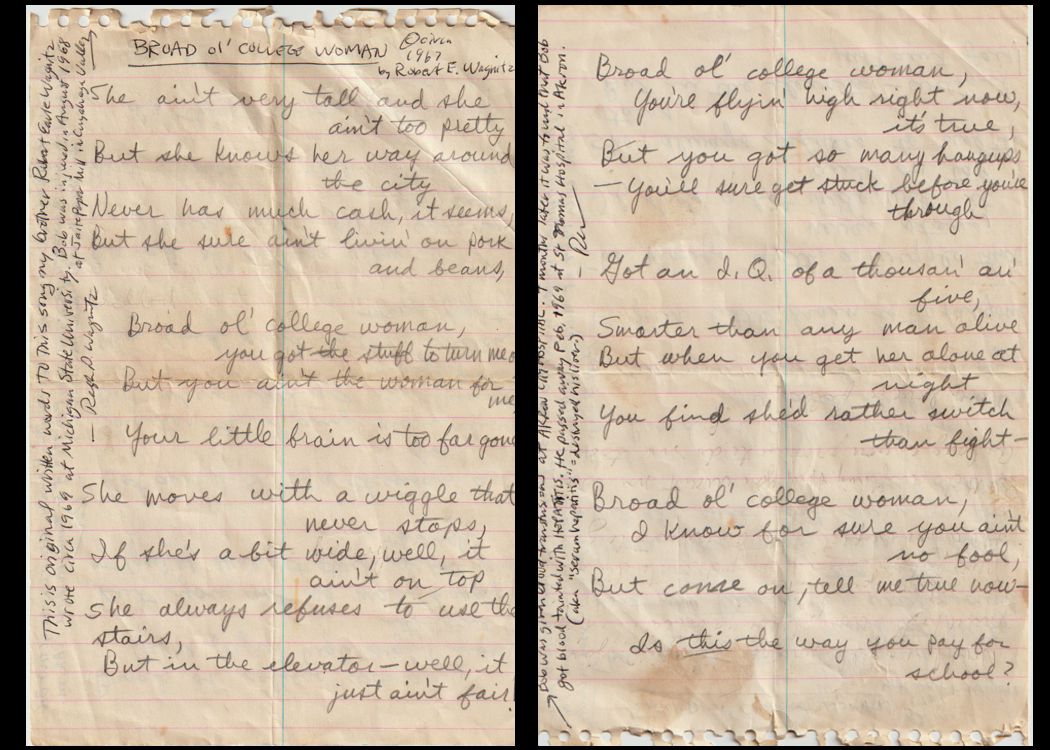 BROAD ol' COLLEGE WOMAN
© circa
1967
by Robert E. Wagnitz
She ain't very tall and she
ain't too pretty
But she knows her way around
the city
Never has much cash, it seems,
But she sure ain't livin' on pork
and beans,
Broad ol' college woman,
you got the stuff to turn me o
But you ain't the woman for
me
Your little brain is too far gone
She moves with a wiggle that
never stops,
If she's a bit wide, well, it
ain't on top
She always refuses to use the
stairs,
But in the elevator – well, it
just ain't fair!
This is original written words TO This song my brother Robert Earle Wagnitz
wrote circa 1969 at Michigan State University. Bob was injured in August 1968
at Jaite Paper Mill in Cuyahoga Valley
— Ralph D Wagnitz
Broad ol' college woman,
You're flyin' high right now,
it's true,
But you got so many hangups
— You'll sure get stuck before you're
through
Got an I.Q. of a thousan' an'
five,
Smarter than any man alive
But when you get her alone at
night
You find she'd rather switch
than fight —
Broad ol' college woman,
I know for sure you ain't
no fool,
But come on, tell me true now —
Is this the way you pay for
school?
Bob was given blood transfusions at Akron City Hospital. 7 months later it was found that Bob
got blood tainted with HEPATITIS. He passed away Feb, 1969 at St Thomas Hospital in Akron.
(aka "serum hepatitis" = destroyed his liver)